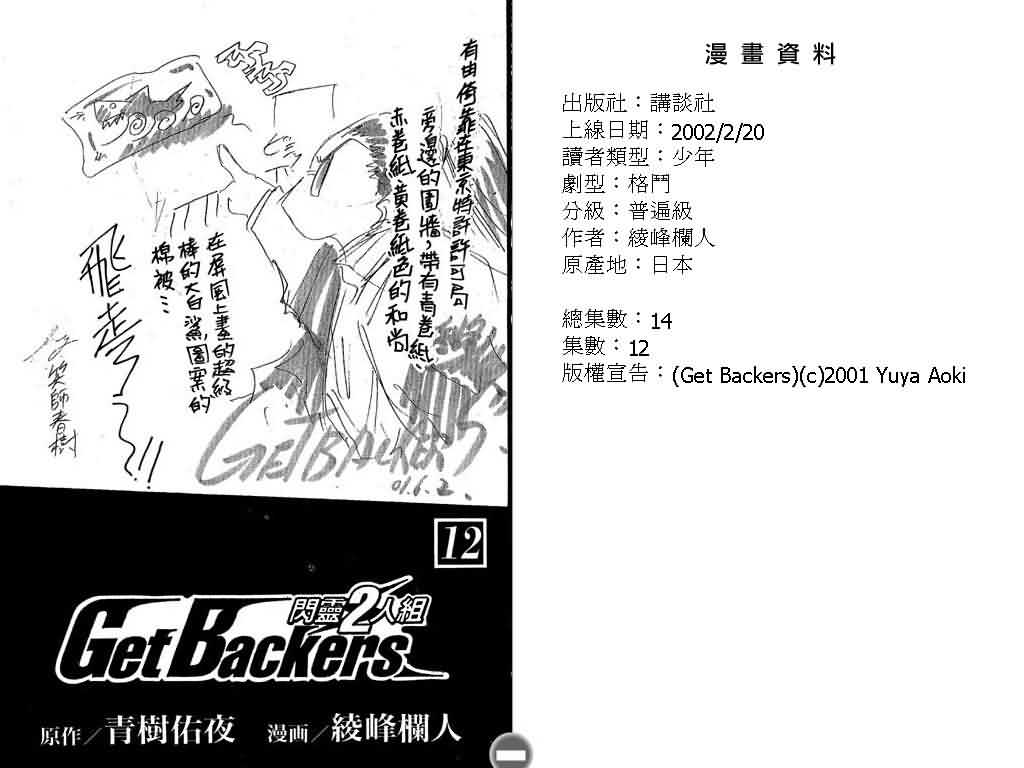 有由倚靠在東京特許許可局
旁邊的圍牆，帶有青卷紙、
赤卷紙、黃卷紙色的和尚
在屏風上畫的超級
棒的大白鯊圖案的
棉被…
飛走了～～!!
笑師春樹
GETBACKERS
01.6.2.
12
閃靈2人組
GetBackers
原作／青樹佑夜 漫画／綾峰欄人
漫畫資料
出版社：講談社
上線日期：2002/2/20
讀者類型：少年
劇型：格鬥
分級：普遍級
作者：綾峰欄人
原產地：日本
總集數：14
集數：12
版權宣告：(Get Backers)(c)2001 Yuya Aoki